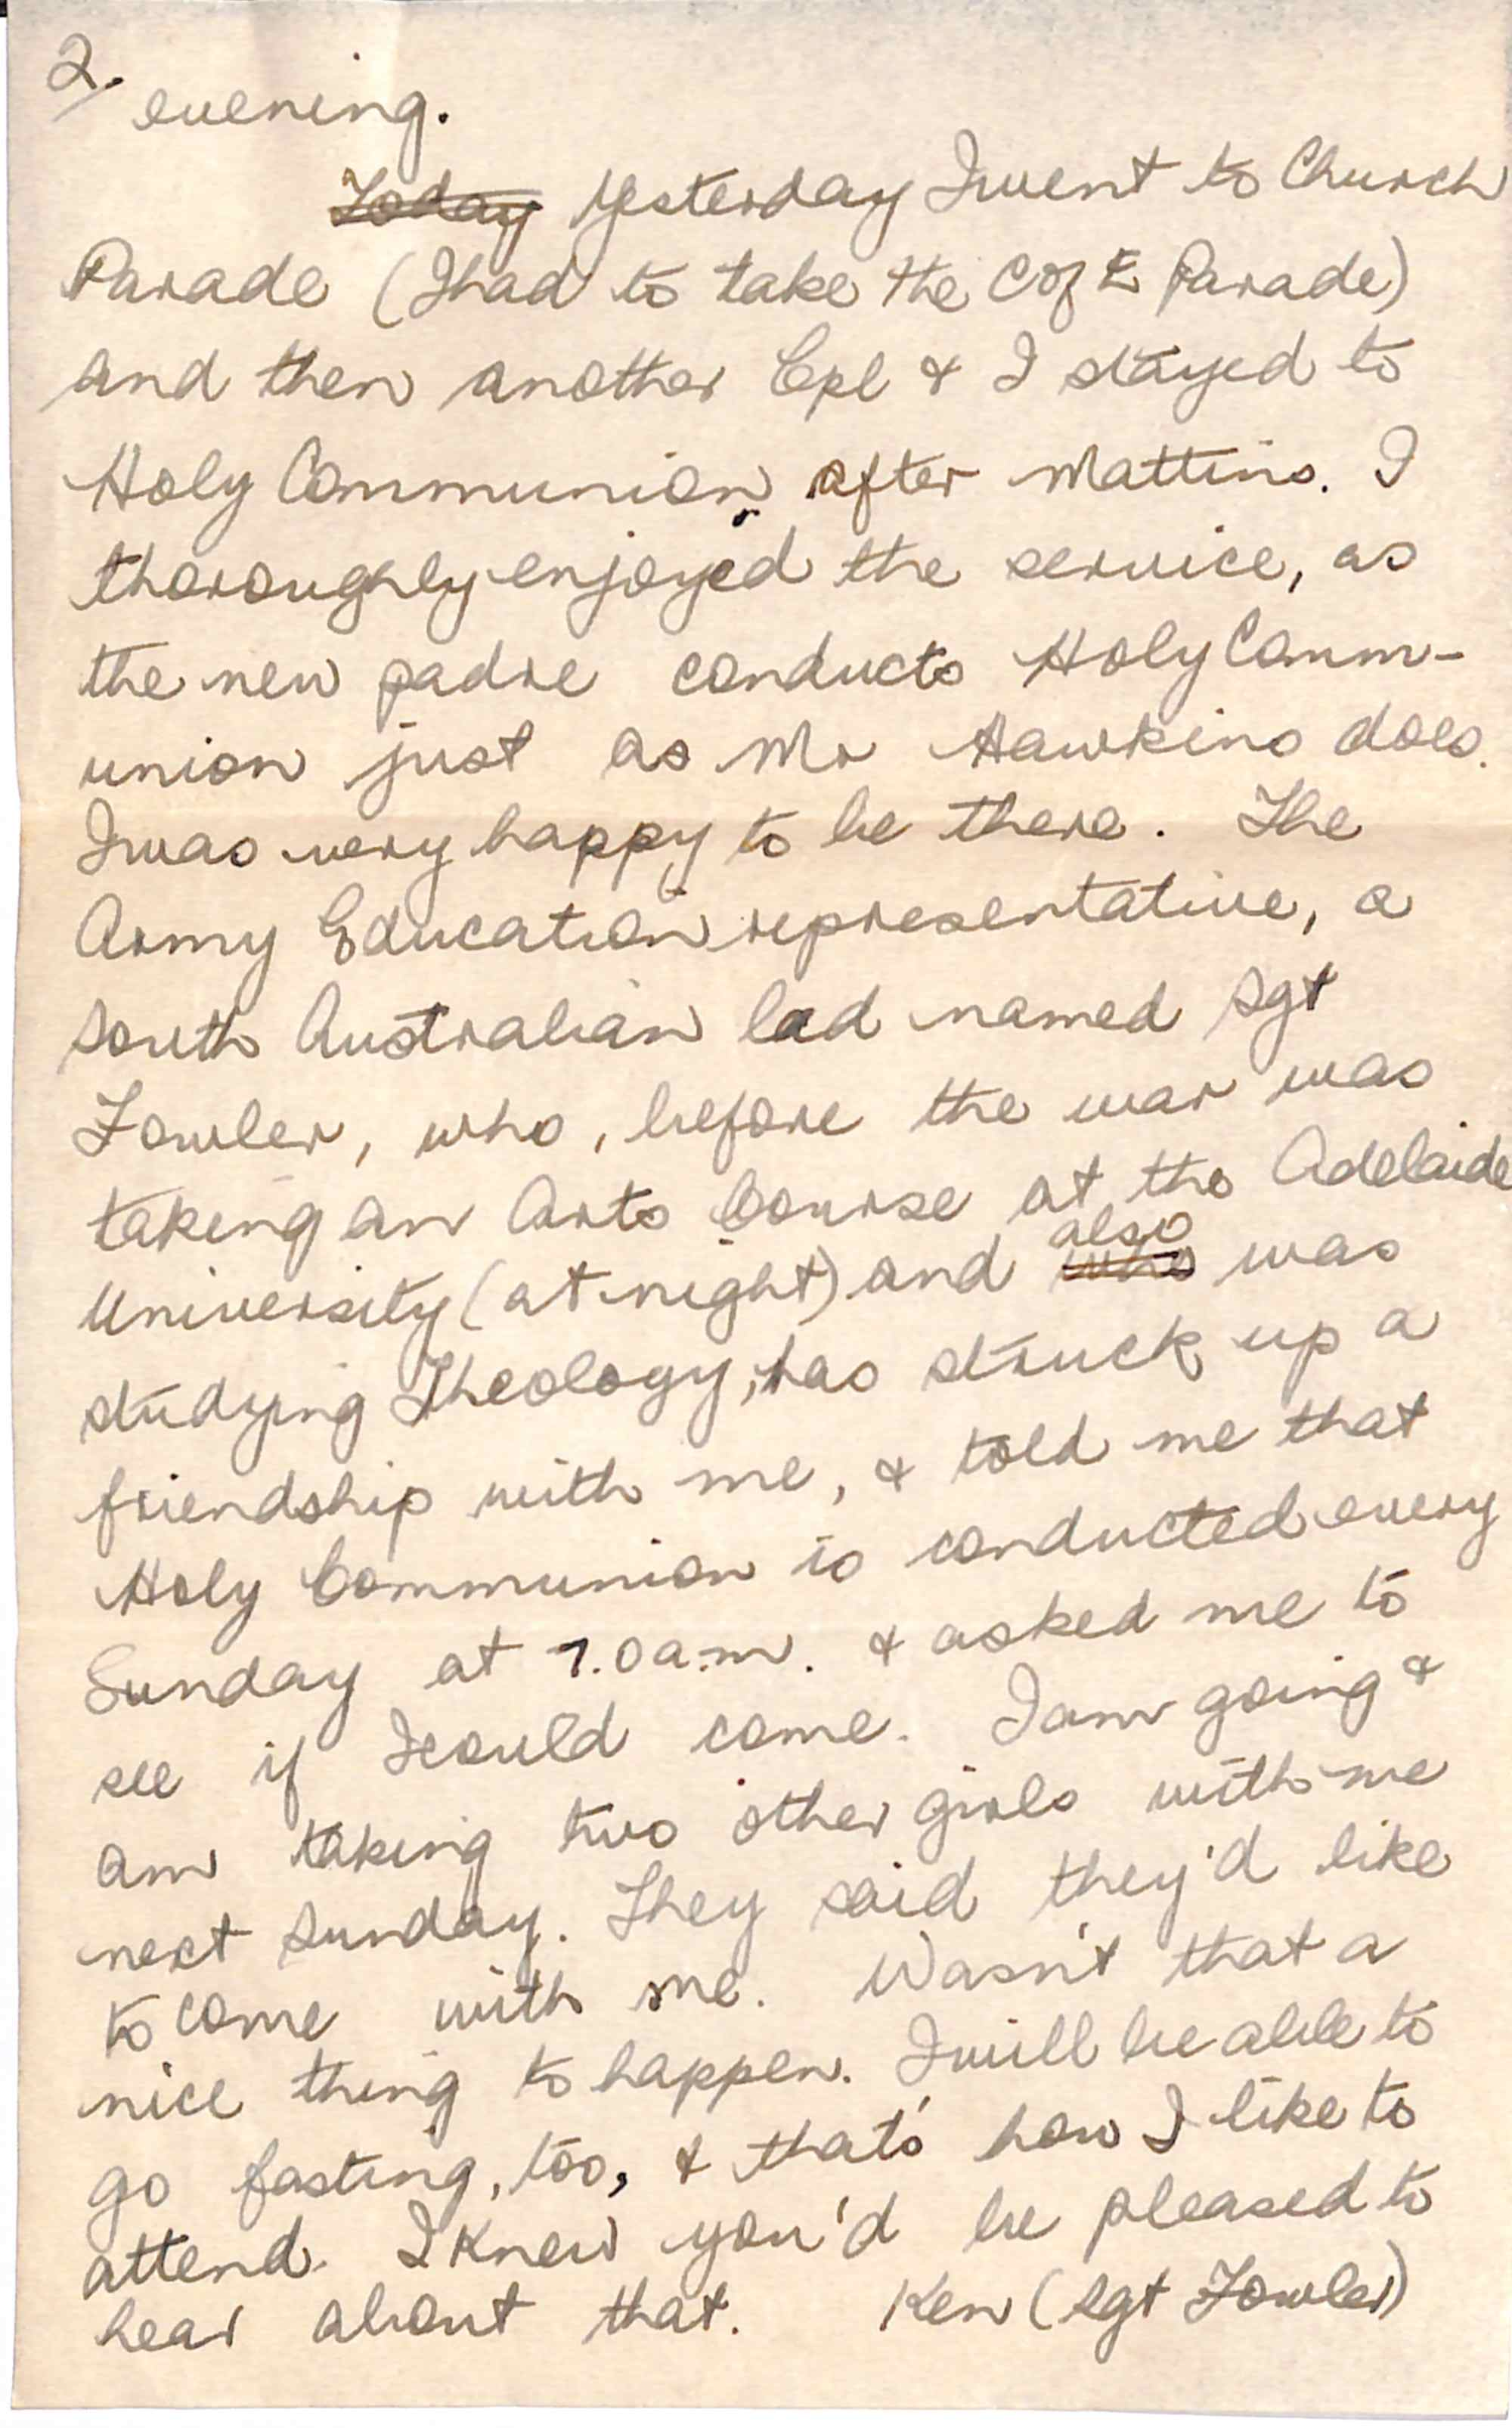 2.
evening.
Today Yesterday I went to Church
Parade (I had to take the C of E Parade)
and then another Cpl & I stayed to
Holy Communion after Mattins. I
thoroughly enjoyed the service, as
the new padre conducts Holy Comm-
union just as Mr Hawkins does.
I was very happy to be there. The
Army Education representative, a
South Australian lad named Sgt
Fowler, who, before the war was
taking an Arts Course at the Adelaide
also
University (at night) and who was
studying Theology, has struck up a
friendship with me, & told me that
Holy Communion is conducted every
Sunday at 7.0 a.m. & asked me to
see if I could come. I am going &
am taking two other girls with me
next Sunday. They said they'd like
to come with me. Wasn't that a
nice thing to happen. I will be able to
go fasting, too, & that's how I like to
attend. I knew you'd be pleased to
hear about that. Ken (Sgt Fowler)